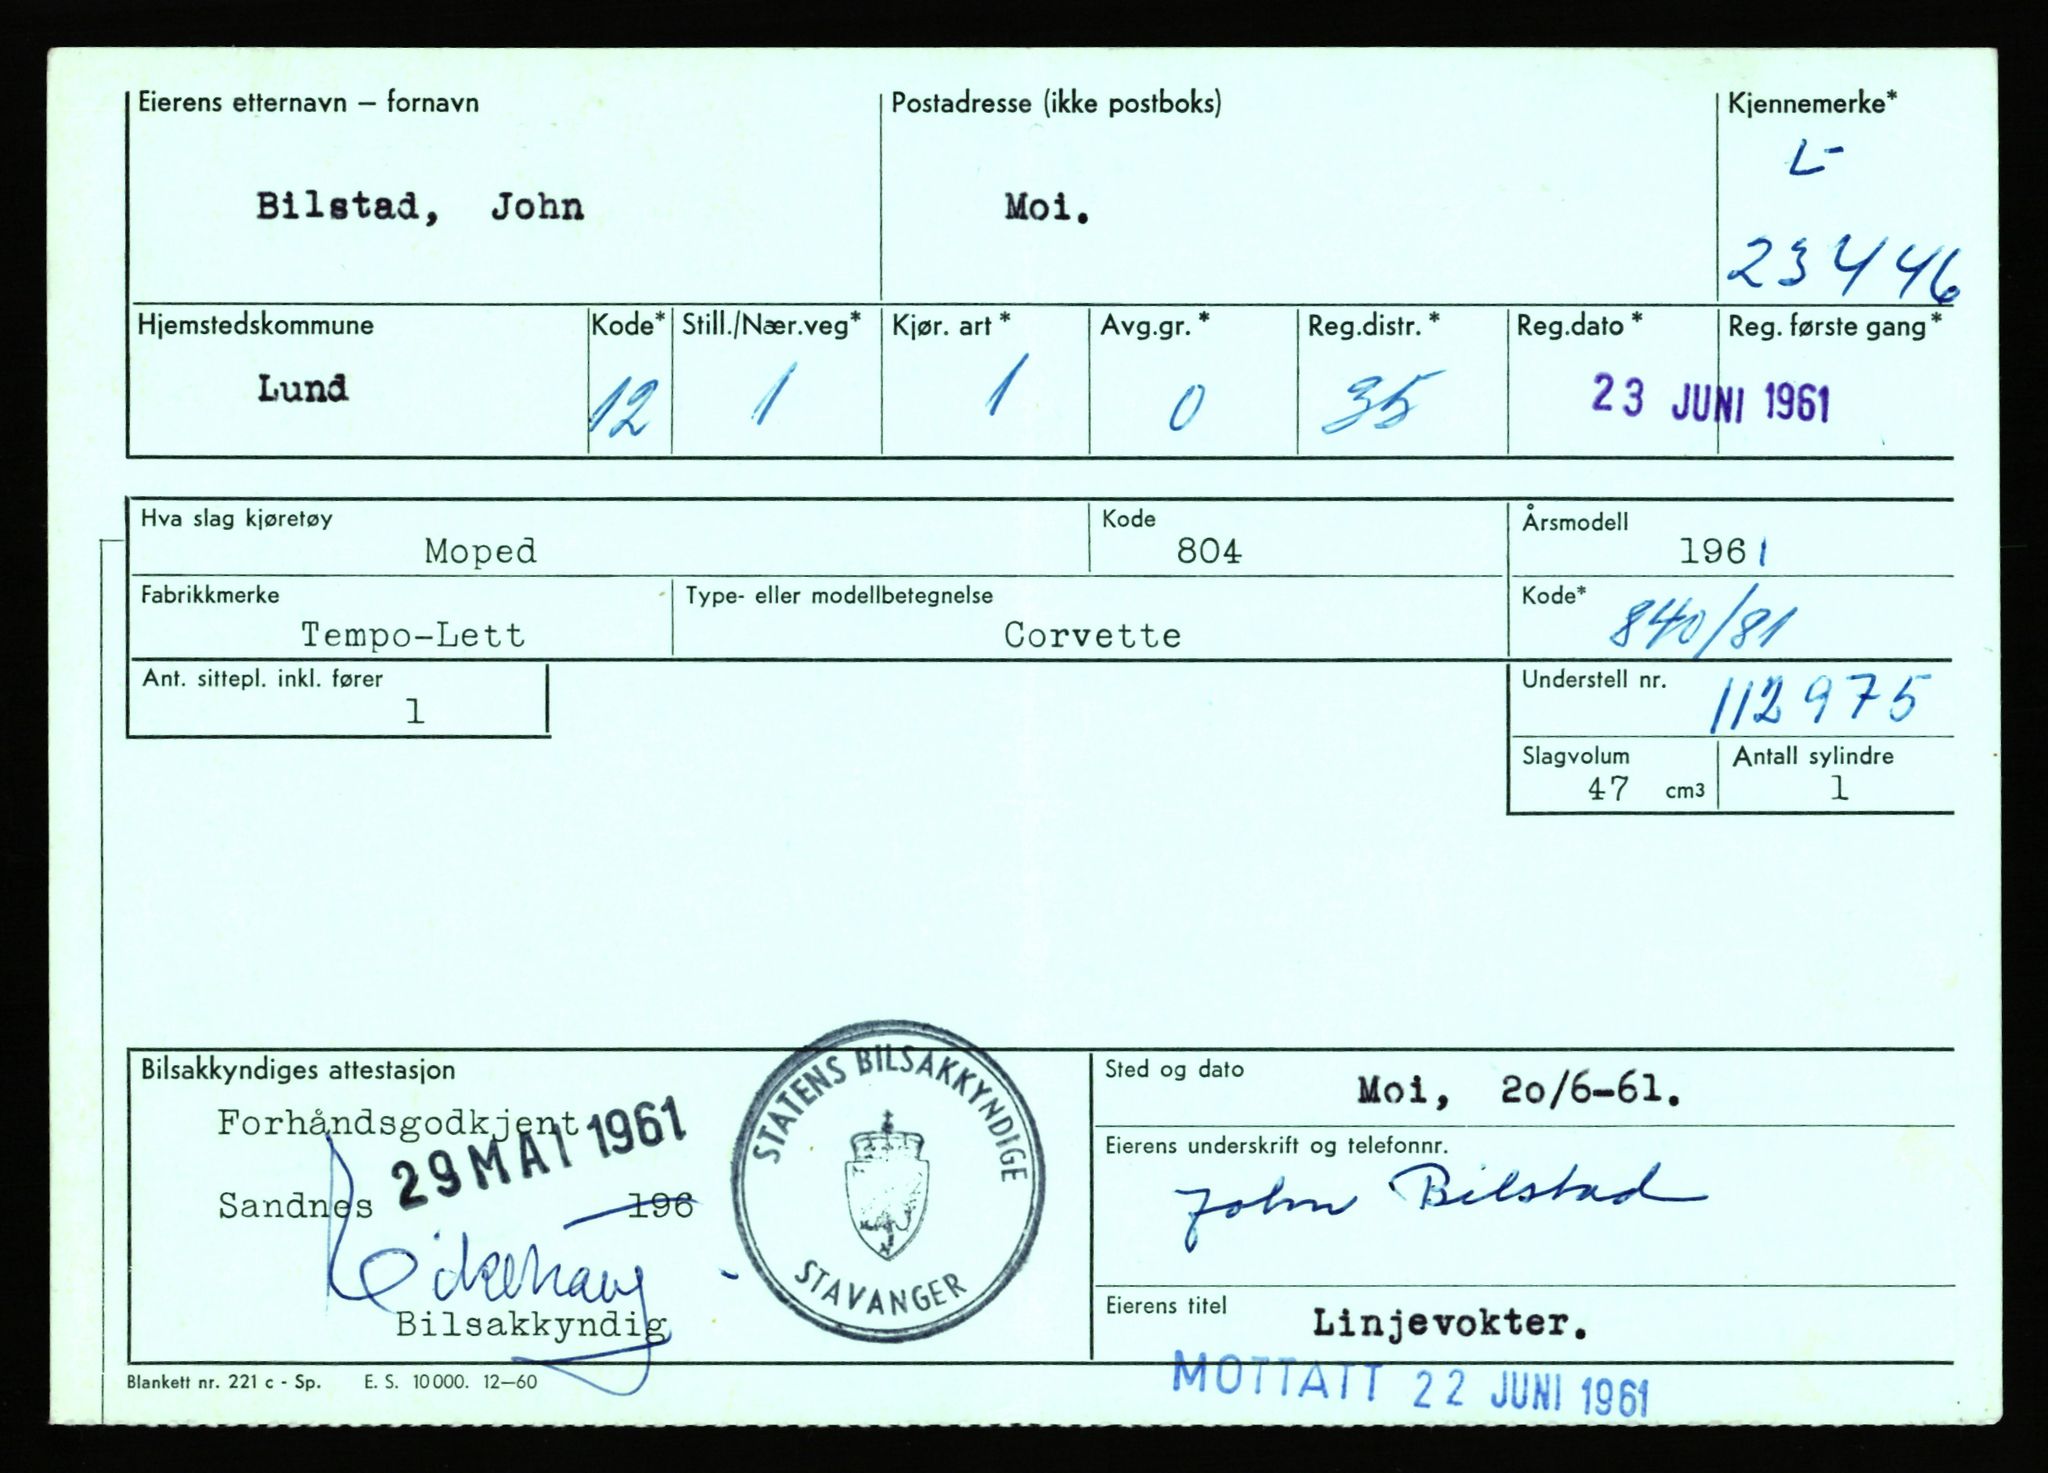 Eierens etternavn – fornavn
Bilstad, John
Postadresse (ikke postboks)
Moi.
Kjennemerke*
L-
23446
Hjemstedskommune
Lund
Kode*
12
Still./Nær.veg*
1
Kjør. art *
1
Avg.gr. *
0
Reg.distr. *
35
Reg.dato *
Reg. første gang*
23 JUNI 1961
Hva slag kjøretøy
Moped
Kode
804
Årsmodell
1961
Fabrikkmerke
Tempo-Lett
Type- eller modellbetegnelse
Corvette
Kode*
840/81
Ant. sittepl. inkl. fører
1
Understell nr.
112975
Slagvolum
47 cm3
Antall sylindre
1
Bilsakkyndiges attestasjon
Forhåndsgodkjent
29 MAI 1961
Sandnes 196
Bilsakkyndig
STATENS BILSAKKYNDIGE
STAVANGER
Sted og dato
Moi, 20/6-61.
Eierens underskrift og telefonnr.
John Bilstad
Eierens titel
Linjevokter.
MOTTATT 22 JUNI 1961
Blankett nr. 221 c - Sp. E. S. 10000. 12–60